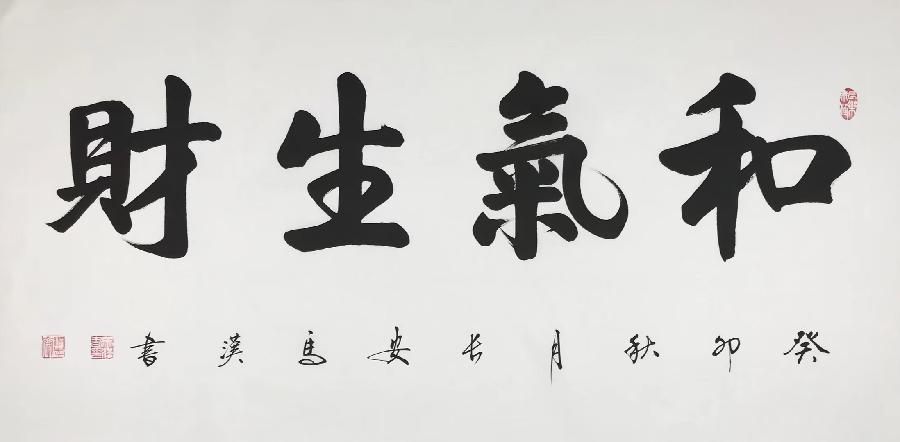 和氣生財
癸卯秋月长安馬漢書